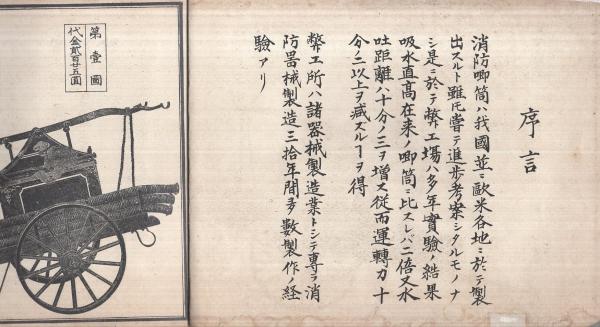 序言
消防喞筒ハ我國並ニ歐米各地ニ於テ製
出スルト雖𪜈嘗テ進歩考案シタルモノナ
シ是ニ於テ弊工場ハ多年實驗ノ結果
吸水直高在来ノ喞筒ニ比スレバ二倍又水
吐距離ハ十分ノ三ヲ増ス従而運轉力十
分ノ二以上ヲ減スルヿヲ得
弊工所ハ諸器械製造業トシテ專ラ消
防噐械製造三拾年間多数製作ノ経
驗アリ
第壹圖
代金貳百廿五圓